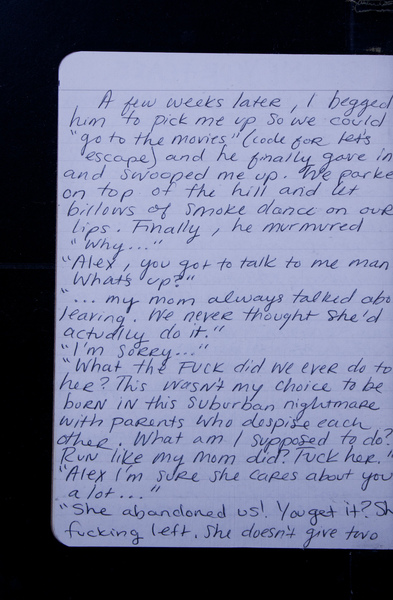 A few weeks later, I begged
him to pick me up so we could
"go to the movies" (code for let's
escape) and he finally gave in
and swooped me up. We parke
on top of the hill and let
billows of smoke dance on our
lips. Finally, he murmured
"Why..."
"Alex, you got to talk to me man
What's up?"
"... my mom always talked abo
leaving. We never thought she'd
actually do it."
"I'm sorry..."
"What the FUCK did we ever do to
her? This wasn't my choice to be
born in this suburban nightmare
with parents who despise each
other. What am I supposed to do?
Run like my mom did? Fuck her."
"Alex I'm sure she cares about you
a lot..."
"She abandoned us! You get it? Sh
fucking left. She doesn't give two